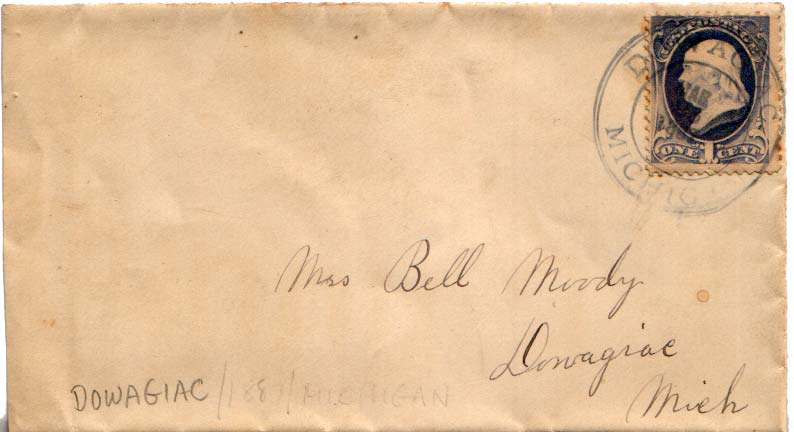 U.S. POSTAGE
ONE 1 CENT
MICHIGAN
Mrs Bell Moody
Dowagiac
Mich
DOWAGIAC / MICHIGAN